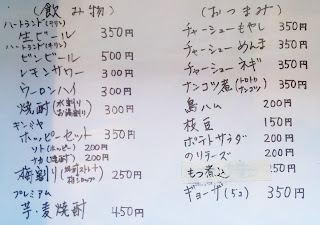 (飲み物)
(ハートランド(キリン)
生ビール 350円
ハートランド(キリン)
ビンビール 500円
レモンサワー 300円
ウーロンハイ 300円
焼酎(水割り お湯割り) 300円
キンミヤ
ホッピーセット 350円
ソト(ホッピー) 200円
ナカ(焼酎) 200円
梅割り(焼酎ストレート+梅シロップ) 250円
プレミアム
芋・麦焼酎 450円
(おつまみ)
チャーシューもやし 350円
チャーシューめんま 350円
チャーシューネギ 350円
ナンコツ煮(トロトロナンコツ) 350円
島ハム 200円
枝豆 150円
ポテトサラダ 200円
のりチーズ 200円
もつ煮込 250円
ギョーザ(5コ) 350円